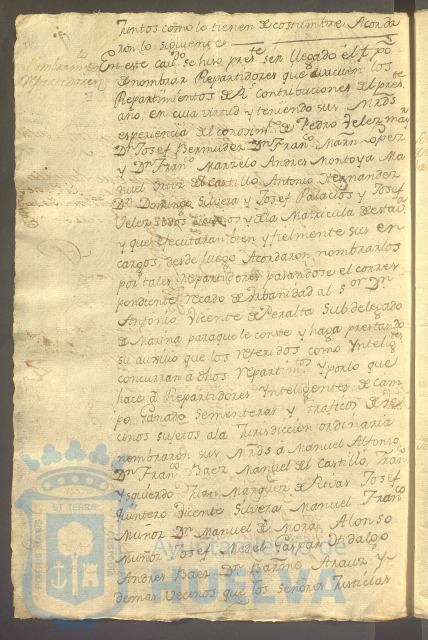 Juntos como lo tienen de costumbre Acorda
ron lo siguiente
Nombram.to de
Repartidores
En este cav.do se hizo pres.te ser llegado el tpo
de nombrar Repartidores que evacuen los
Repartimientos de R.s contribuciones del pres.te
año, en cuia virtud y teniendo sus Mrds
esperiencia del conosim.to de Pedro Velez mar
Dn Josef Bermudez Dn Fran.co Marin Lopez
y Dn Fran.co Marzelo Andres Montoya Ma
nuel Ortiz del Castillo Antonio Hernandez
Dn Domingo Silvera y Josef Palacios y Josef
Velez todos de la Matricula de esta v.a
y que executaran bien y fielmente sus en
cargos, desde luego Acordaron nombrarlos
por tales Repartidores pasandose el corres
pondiente recado de urbanidad al S.or Dn
Antonio Vicente de Peralta Subdelegado
de Marina para que le conste y haga prestando
su auxilio que los referidos como Yntelig.tes
concurran a dhos repartim.tos y por lo que
hace a Repartidores Ynteligentes de Cam
po Ganado Sementeras y traficos de ve
cinos sujetos a la Jurisdiccion ordinaria
nombraron sus Mrds a Manuel Alfonso
Dn Fran.co Baez Manuel del Castillo, Fran.co
Ysquierdo Juan Marquez de Rivas Josef
Quintero Vicente Silvera Manuel Fran.co
Muñoz Dn Manuel de Mora, Alonso
Muñoz Josef Miguel Gaspar Hidalgo
Andres Baez Dn Arauz y
demas Vecinos que los Señores Justicias
Ayuntamiento de
HUELVA
ET TERRÆ